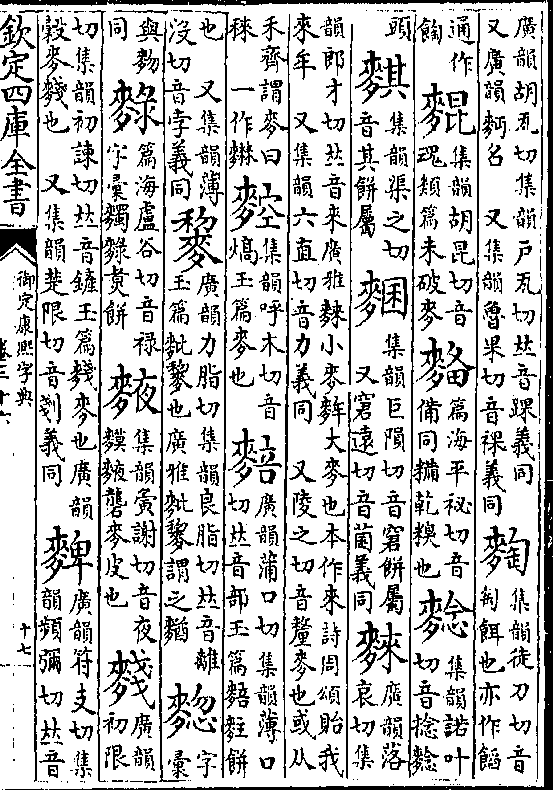 廣韻胡瓦切集韻戶瓦切𠀤音踝義同
又廣韻麪名　又集韻魯果切音裸義同
䬞 集韻徒刀切音
匋餌也亦作饀
通作
餛
䴷 集韻胡昆切音
䰟類篇未破麥
篇海平祕切音
備同糒乾糗也
集韻諾叶
切音捻麯
頭
麒 集韻渠之切
音其餅屬
集韻巨隕切音窘餅屬
又窘遠切音菌義同
麳 廣韻落
哀切集
韻郎才切𠀤音來廣雅麳小麥䴰大麥也本作來詩周頌貽我
來牟　又集韻六直切音力義同　又陵之切音釐麥也或从
禾齊謂麥曰
秾　一作𪌱
集韻呼木切音
熇玉篇麥也
䴺 廣韻蒲口切集韻薄口
切𠀤音部玉篇䴺䴹餅
也　又集韻薄
沒切音孛義同
䵩 廣韻力脂切集韻良脂切𠀤音離
玉篇䴡䵩也廣雅䴡䵩謂之麯
麹 字
彙
與麴
同
䴪 篇海盧谷切音祿
字彙䵃䴪煑餅
䴬 集韻夤謝切音夜
䵃䴬礱麥皮也
䴼 廣韻
初限
切集韻初諫切𠀤音鏟玉篇䴼麥也廣韻
穀麥䴼也　又集韻楚限切音剗義同
䴽 廣韻符支切集
韻頻彌切𠀤音
欽定四庫全書
御定康熙字典
卷三十六
十七